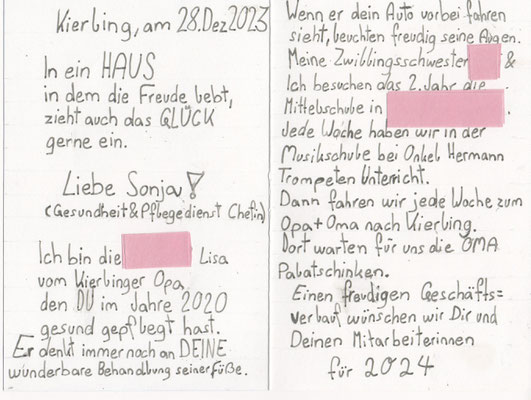 Kierling, am 28.Dez2023
In ein HAUS
in dem die Freude lebt,
zieht auch das GLÜCK
gerne ein.
Liebe Sonja!
(Gesundheit&Pflegedienst Chefin)
Ich bin die Lisa
vom Kierlinger Opa,
den DU im Jahre 2020
gesund gepflegt hast.
Er denkt immer noch an DEINE
wunderbare Behandlung seiner Füße.
Wenn er dein Auto vorbei fahren
sieht, leuchten freudig seine Augen.
Meine Zwillingsschwester &
Ich besuchen das 2. Jahr die
Mittelschule in
Jede Woche haben wir in der
Musikschule bei Onkel Hermann
Trompeten Unterricht.
Dann fahren wir jede Woche zum
Opa+Oma nach Kierling.
Dort warten für uns die OMA
Palatschinken.
Einen freudigen Geschäfts=
verlauf wünschen wir Dir und
Deinen Mitarbeiterinnen
für 2024